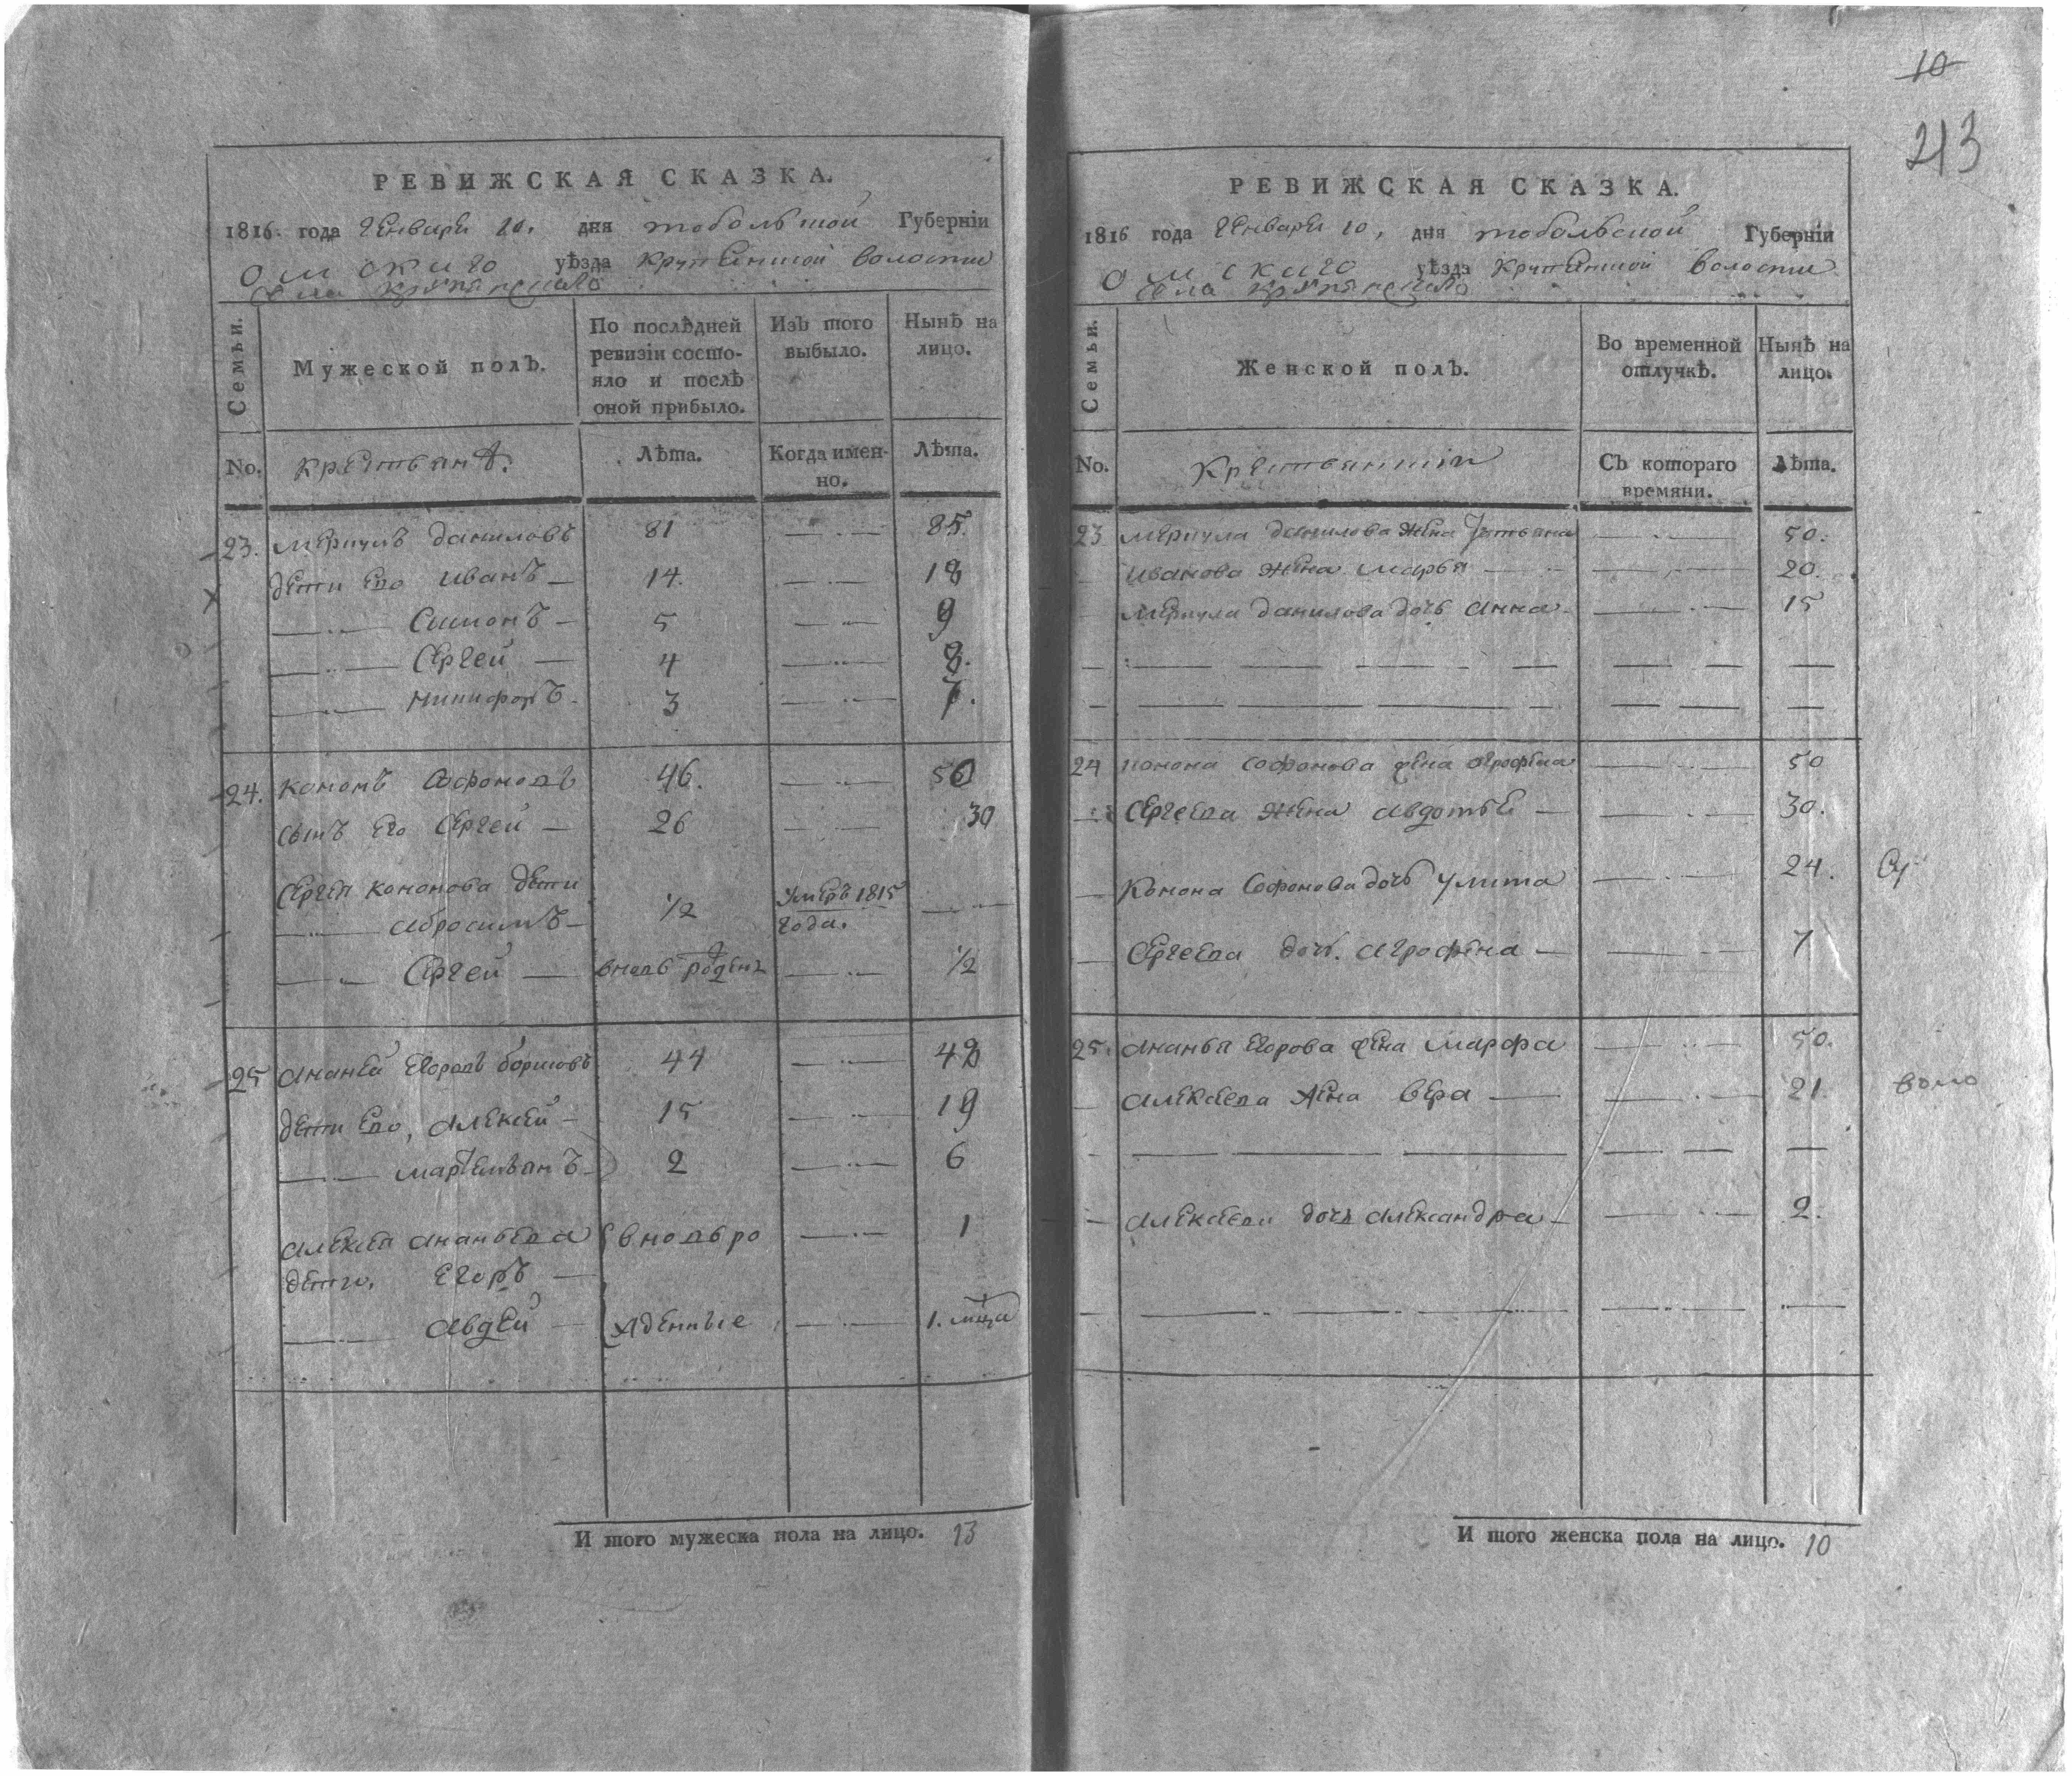 РЕВИЖСКАЯ СКАЗКА.
1816. года Генваря 10. дня тобольской Губерніи
Омскаго уѣзда крутинской волости
села крутинскаго
Семьи.
Мужеской полъ.
По послѣдней ревизіи состояло и послѣ оной прибыло.
Изъ того выбыло.
Нынѣ на лицо.
No. крестьянъ.
Лѣта.
Когда именно.
Лѣта.
23. меркулъ даниловъ 81 85.
дети его иванъ 14. 18
Симонъ 5 9
Сергей 4 8.
никифоръ 3 7.
24. кононъ Софоновъ 46. 50
сынъ его Сергей 26 30
Сергея кононова дети
абросимъ 1/2 умеръ 1815 года.
Сергей вновь рожденъ 1/2
25 ананей Егоровъ 44 48
дети его, алексей 15 19
мартемьянъ 2 6
алексея ананьева вновь ро 1
дети. Егоръ
авдей жденные 1. мца
И того мужеска пола на лицо. 13
10
213
РЕВИЖСКАЯ СКАЗКА.
1816 года Генваря 10, дня тобольской Губерніи
Омскаго уѣзда крутинской волости
села крутинскаго
Семьи.
Женской полъ.
Во временной отлучкѣ.
Нынѣ на лицо.
No. Крестьянки
Съ котораго времяни.
Лѣта.
23 меркула данилова жена татьяна 50.
иванова жена марья 20.
меркула данилова дочь анна 15
24 конона софонова жена агрофена 50
Сергеева жена авдотья 30.
Конона Софонова дочь улита 24.
Сергеева доч. агрофена 7
25. ананья Егорова жена марфа 50.
алексеева жена вера 21.
алексеева дочь александра 2.
И того женска пола на лицо. 10